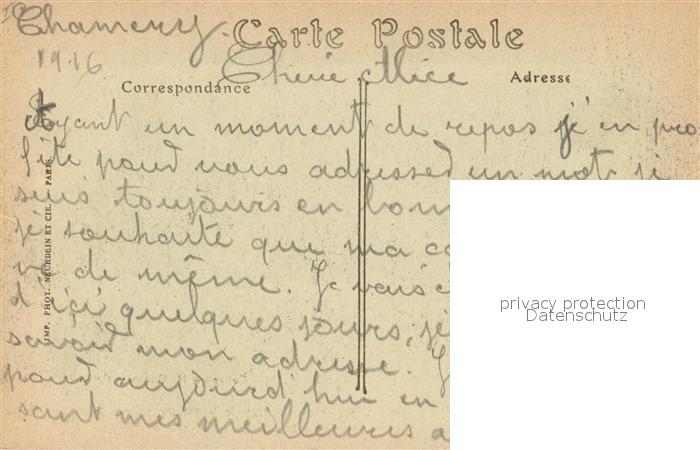 Chamery
Carte Postale
1916
Chère Alice
Correspondance
Adresse
Ayant un moment de repos j'en pro
fite pour vous adresser un mot je
suis toujours en bonn
je souhaite que ma
de même. Je vous
d'ici quelques jours, je
savoir mon adresse.
pour aujourd'hui en
sant mes meilleures a
IMP. PHOT. NEURDEIN ET CIE. PARIS.
privacy protection
Datenschutz